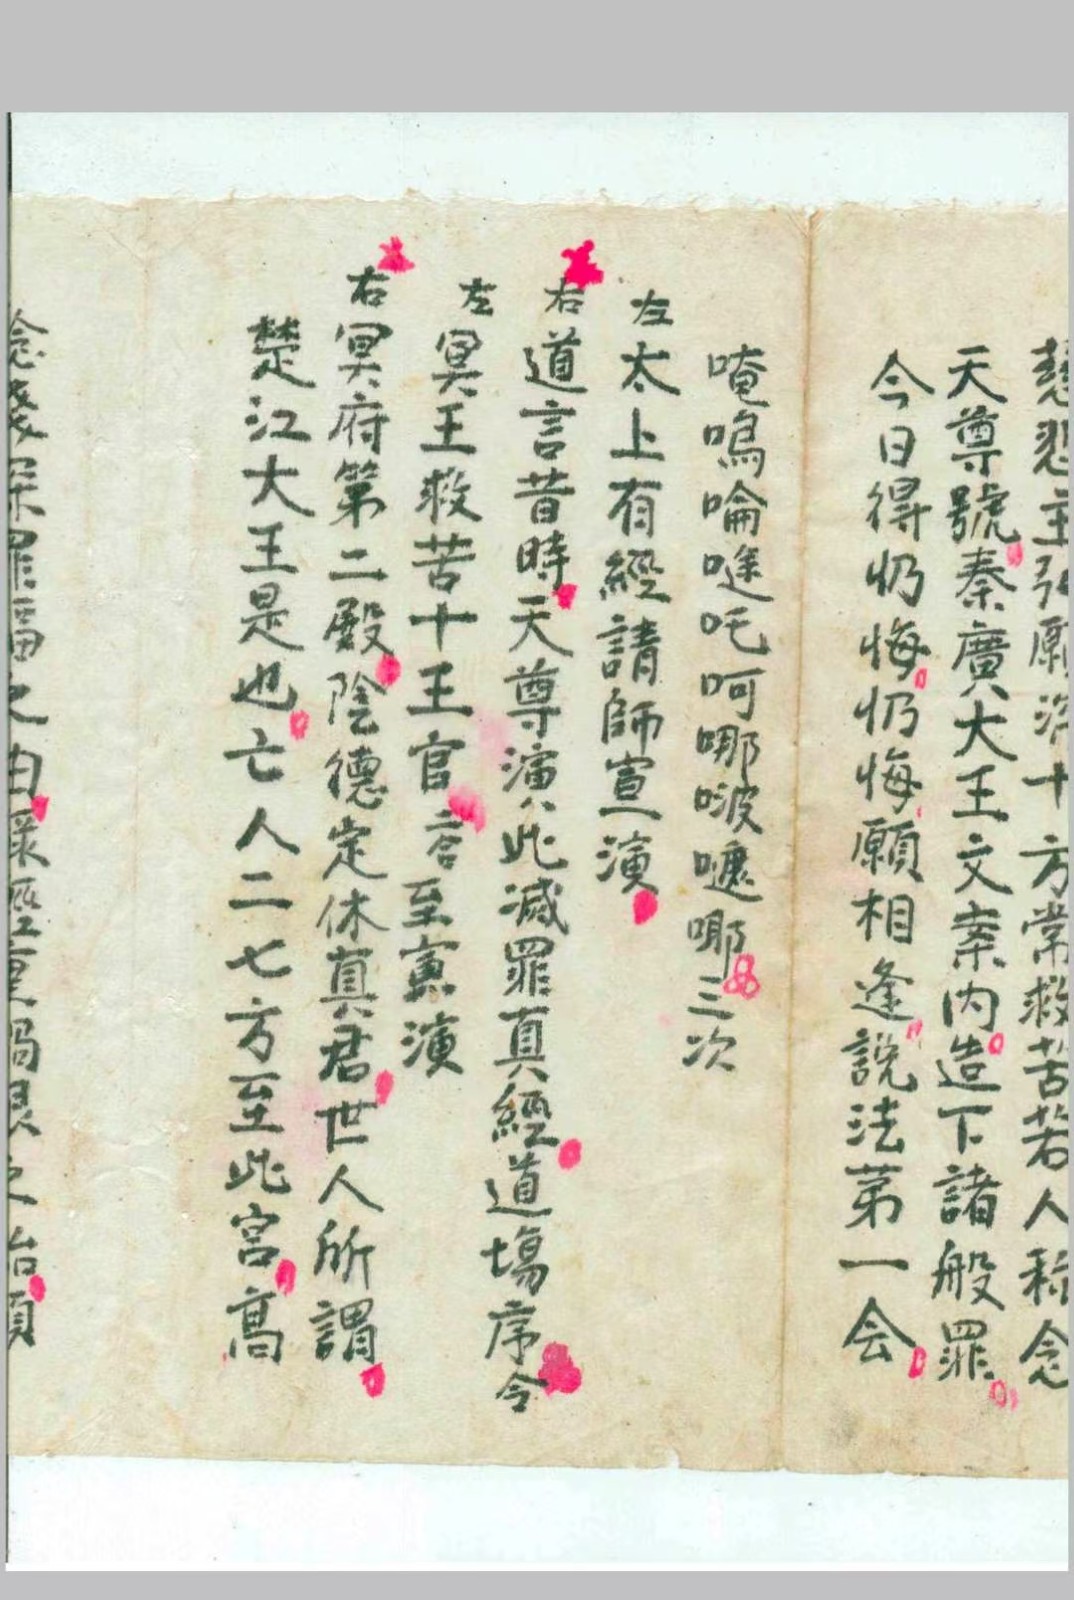 慈悲主弘願濟十方常救苦若人称念
天尊號秦廣大王文案内造下諸般罪
今日得忏悔忏悔願相逢說法苐一会
唵嗚㖮𠱀吒呵哪啵嚜哪三次
左太上有經請師宣演
右道言昔時天尊演此滅罪真經道塲序令
左冥王救苦十王官言至寅演
右冥府第二殿陰德定休真君世人所謂
楚江大王是也亡人二七方至此宮髙
罪福之由